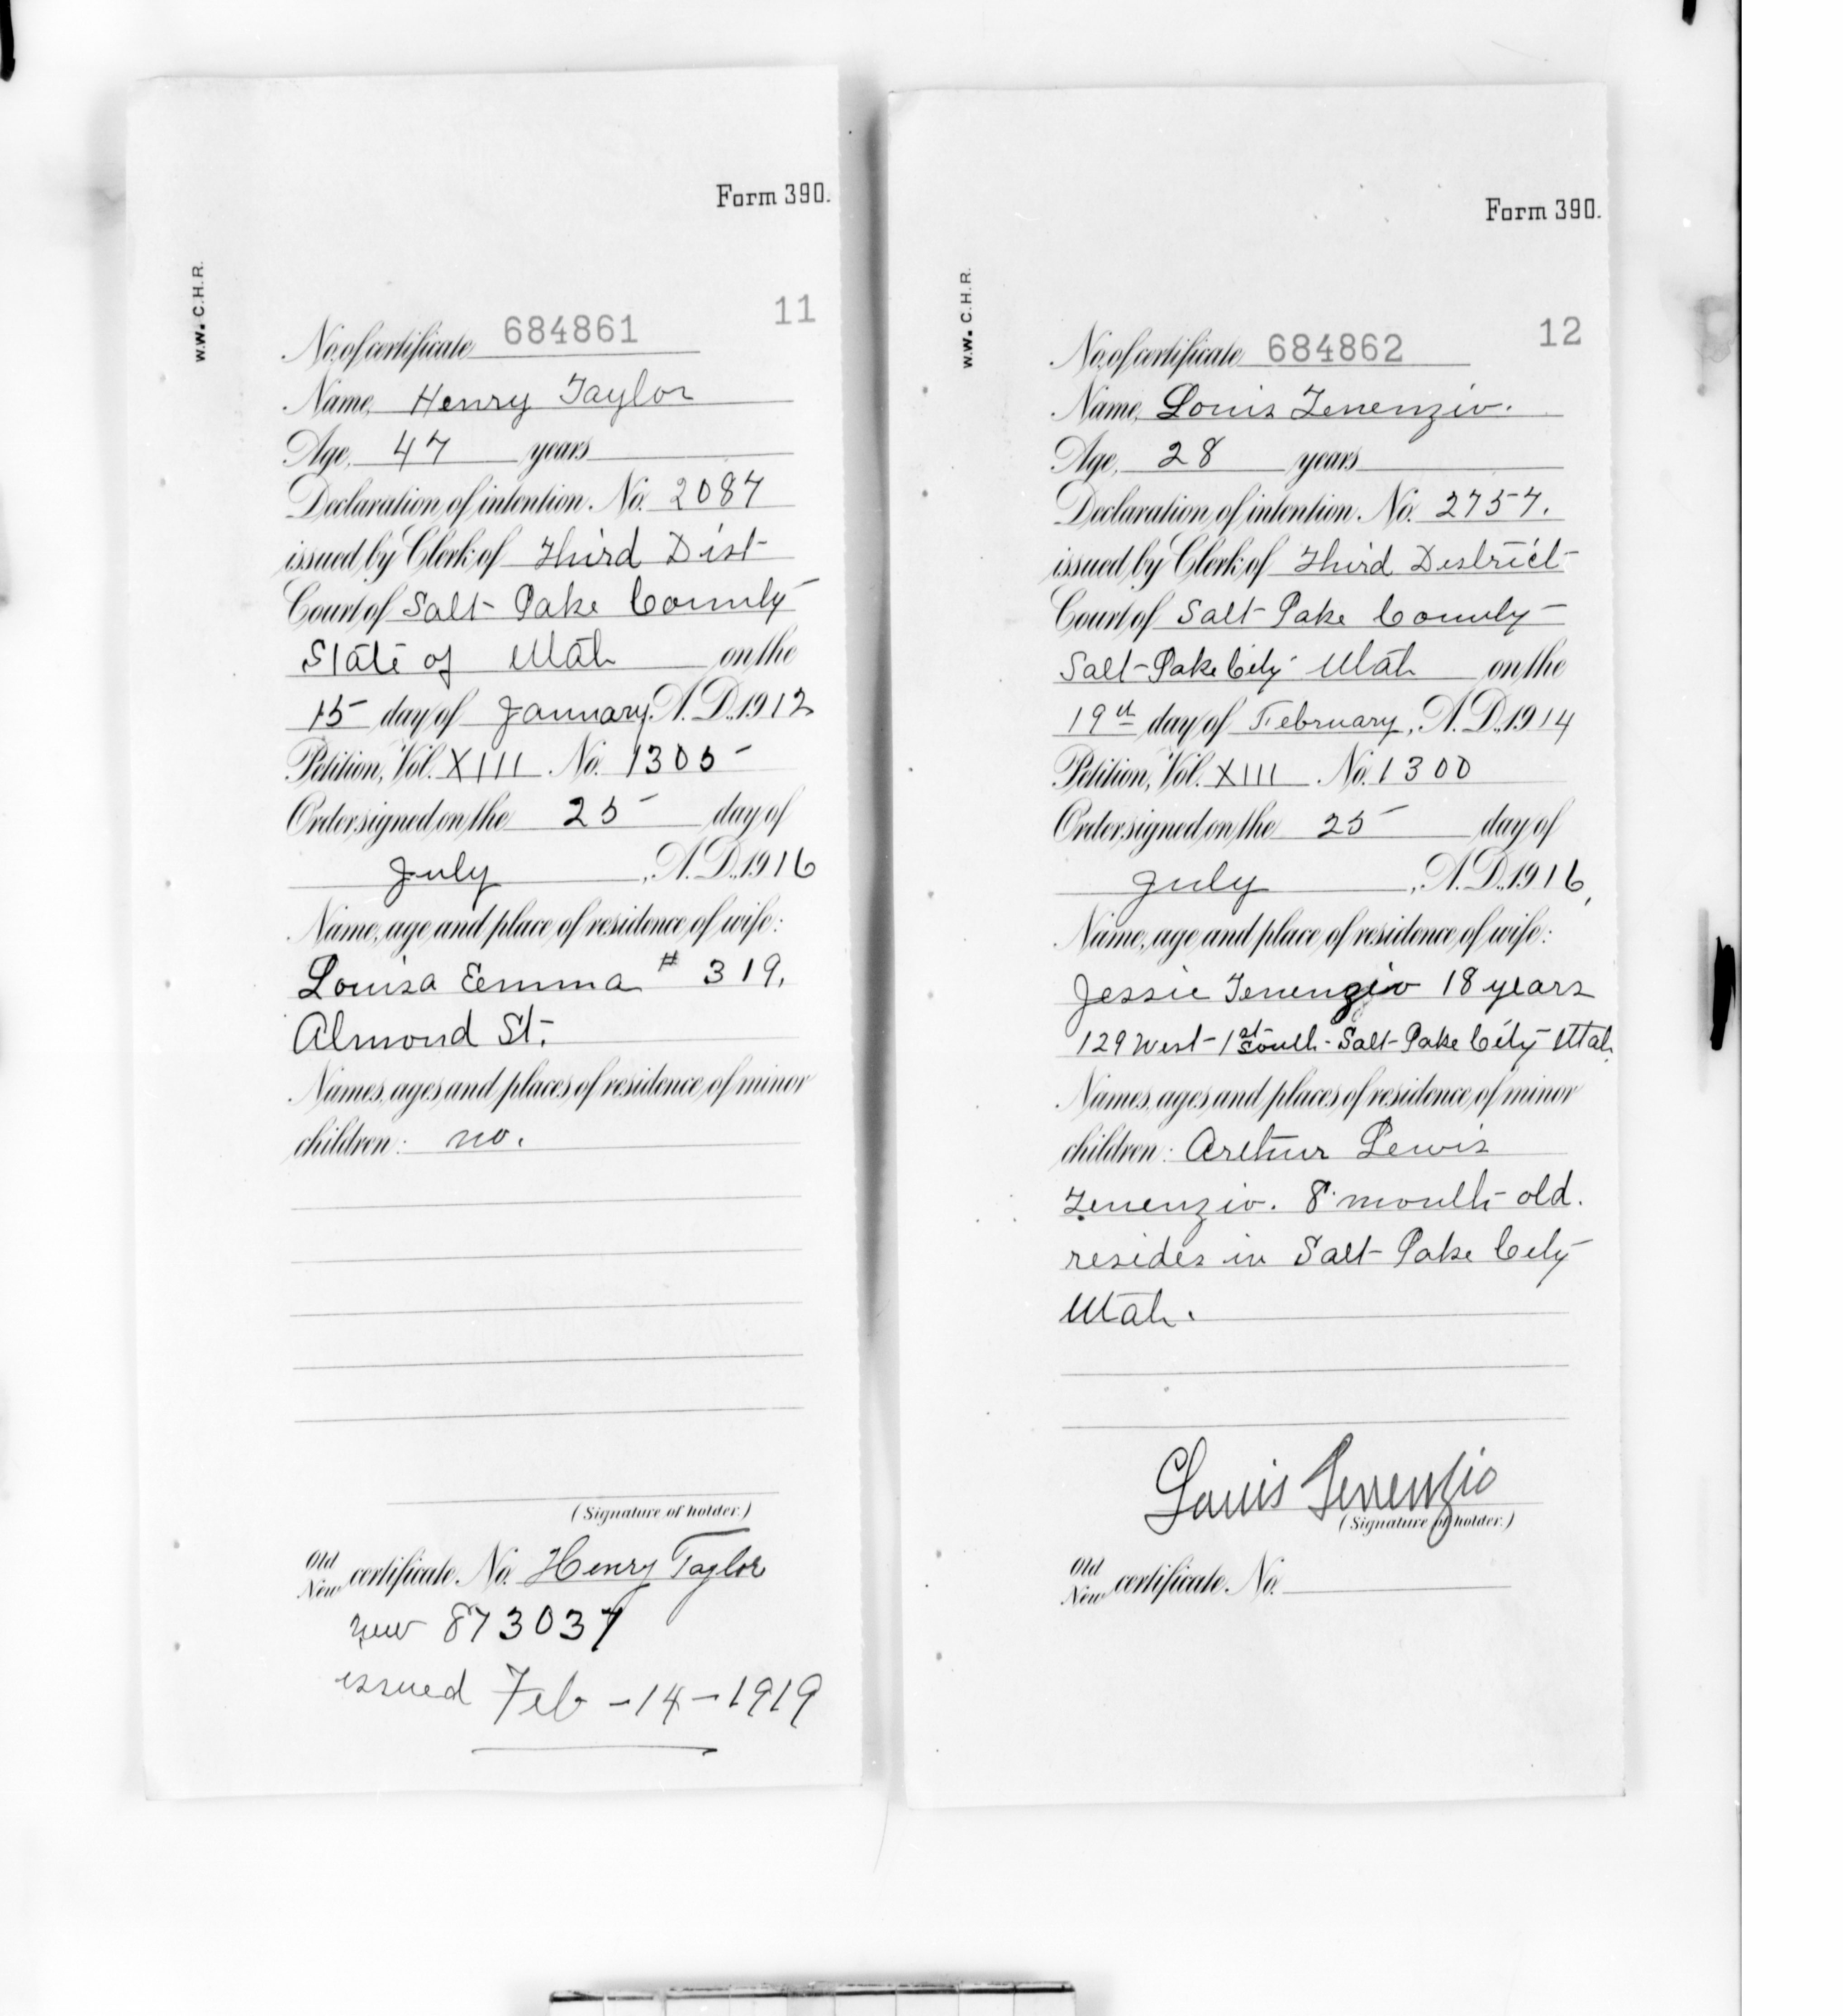 Form 390.
W.W. C.H.R.
11
No. of certificate 684861
Name, Henry Taylor
Age, 47 years
Declaration of intention, No. 2087
issued by Clerk of Third Dist
Court of Salt Lake County
State of Utah on the
15 day of January, A.D., 1912
Petition, Vol. XIII No. 1305
Order signed on the 25 day of
July, A.D., 1916
Name, age and place of residence of wife:
Louisa Emma # 319,
Almond St.
Names, ages and places of residence of minor
children: no.
(Signature of holder.)
Old
New certificate No. Henry Taylor
new 873037
issued Feb -14-1919
Form 390.
W.W. C.H.R.
12
No. of certificate 684862
Name, Louis Tenenzio.
Age, 28 years
Declaration of intention, No. 2757.
issued by Clerk of Third District
Court of Salt Lake County
Salt Lake City Utah on the
19th day of February, A.D., 1914
Petition, Vol. XIII No. 1300
Order signed on the 25 day of
July, A.D., 1916,
Name, age and place of residence of wife:
Jessie Tenenzio 18 years
129 West 1st South Salt Lake City Utah.
Names, ages and places of residence of minor
children: Arthur Lewis
Tenenzio. 8 months old.
resides in Salt Lake City
Utah.
Louis Tenenzio
(Signature of holder.)
Old
New certificate No.